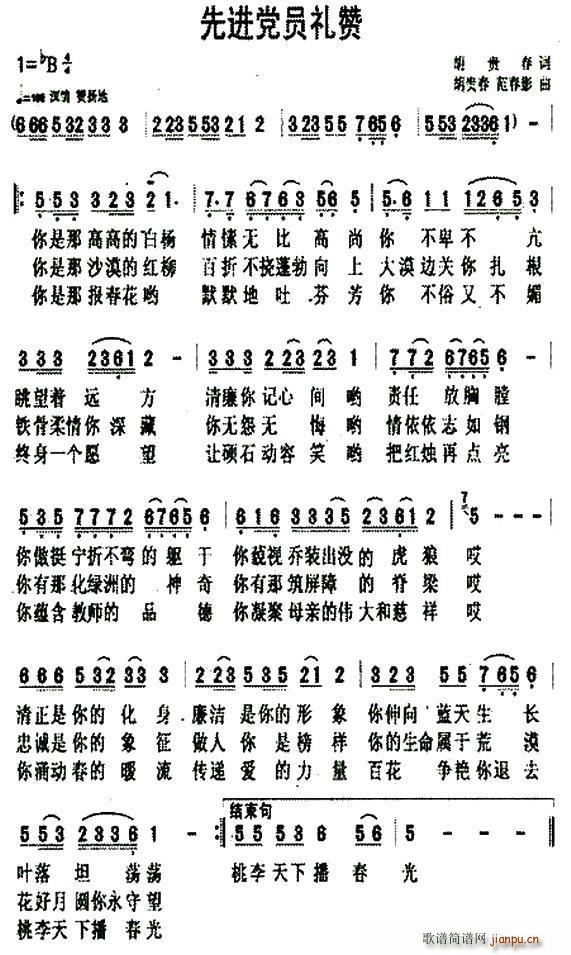 先进党员礼赞
1=♭B 4/4
胡贵春 词
胡贵春 范春影 曲
(6 6 6 5 3 2 3 3 3 | 2 2 3 5 5 3 2 1 2 | 3 2 3 5 5 · 7 6 5 6 | 5 5 3 2 3 3 6 1) -
5 5 3 3 2 3 2 1. | 7·7 6 7 6 3 5 6 5 | 5·6 1 1 1 2 6 5 3
你是那高高的白杨 情愫无比高尚你 不卑不 亢
你是那沙漠的红柳 百折不挠蓬勃向上 大漠边关你扎根
你是那报春花哟 默默地吐芬芳你 不俗又不媚
3 3 3 2 3 6 1 2 - | 3 3 3 2 2 3 2 3 1 | 7 7 2 6 7 6 5 6 -
眺望着 远 方 清廉你记心 间哟 责任 放胸膛
铁骨柔情你深藏 你无怨无 悔哟 情依依志如钢
终身一个愿 望 让顽石动容笑哟 把红烛再点亮
5 3 5 7 7 7 2 6 7 6 5 6 | 6 1 6 3 3 3 5 2 3 6 1 2 | 7 5 - -
你傲挺宁折不弯的躯干 你藐视乔装出没的虎狼 哎
你有那化绿洲的 神奇 你有那筑屏障 的脊梁 哎
你蕴含教师的 品 德 你凝聚母亲的伟大和慈祥 哎
6 6 6 5 3 2 3 3 3 | 2 2 3 5 3 5 2 1 2 | 3 3 2 3 5 5 7 6 5 6
清正是你的 化 身 廉洁 是你的形 象 你伸向 蓝天生 长
忠诚是你的 象 征 做人 你 是榜 样 你的生命属于荒 漠
你涌动春的 暖 流 传递 爱 的力 量 百花 争艳你退 去
5 5 3 2 3 3 6 1 - | 结束句 5 5 5 5 3 6 5 6 | 5 - - -
叶落 坦 荡荡 桃李天下播 春 光
花好月圆你永守望
桃李天下播春光
歌谱简谱网 jianpu.cn